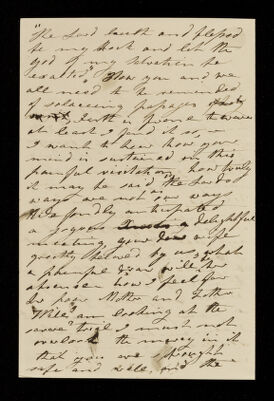 "The Lord liveth and blessed
be my Rock and let the
God of my Salvation be
exalted". How you and we
all need to be reminded
of solaceing passages
at least I find it so, —
I want to hear how your
mind is sustained in this
painful visitation, how truly
it may be said the Lords
ways are not as our ways
fondly anticipated
a joyous delightful
meeting, your dear wife
greatly beloved by us, what
a dear will her
absence how I feel for
her poor Mother and Father
looking at the
trial I must not
overlook the mercy in it
that you were brought
safe and well, and the